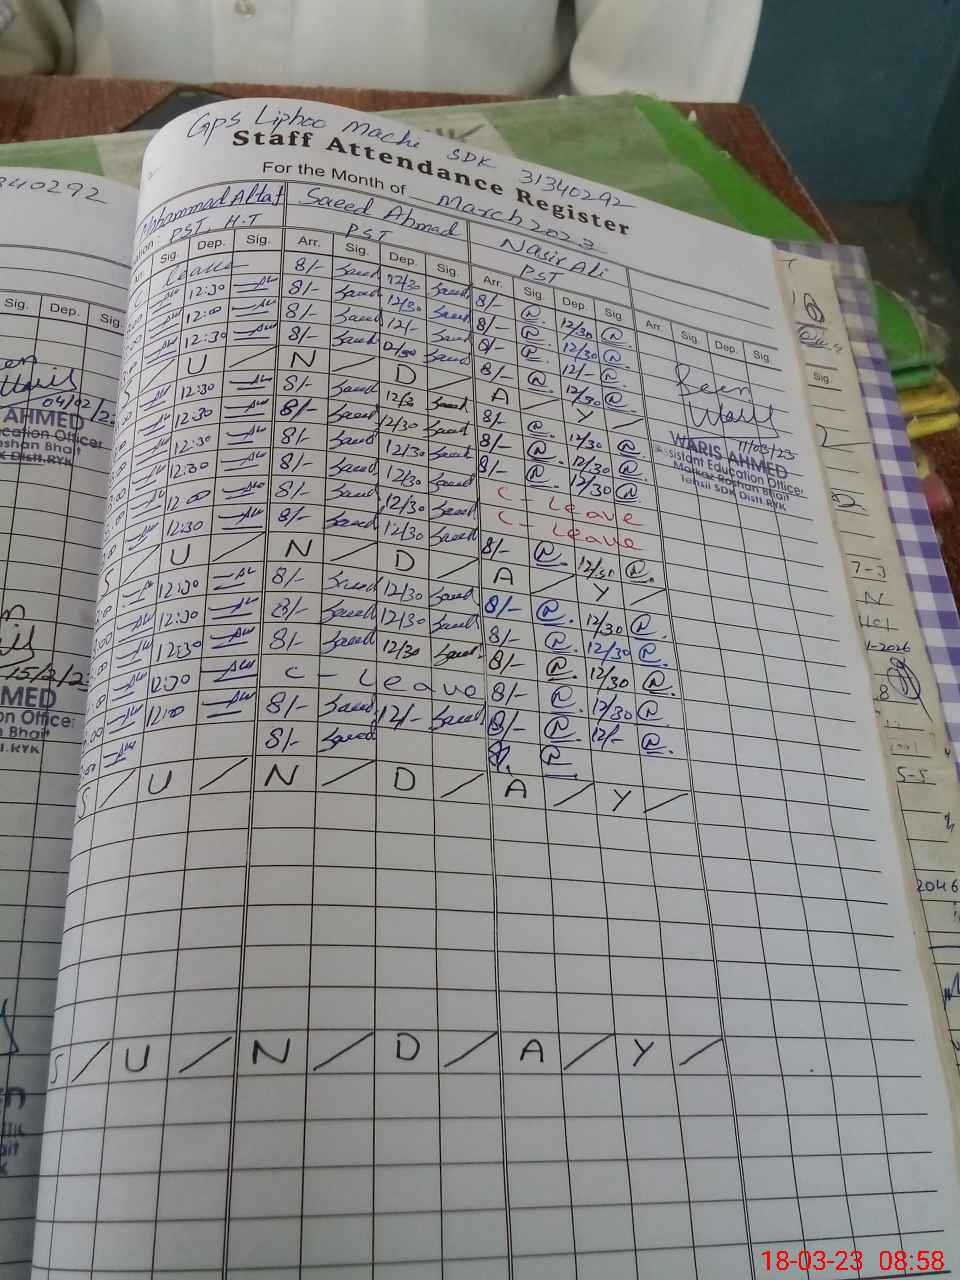 GPS Liphoo Machi SDK 31340292
Staff Attendance Register
For the Month of March 2023
Mohammad Altaf Saeed Ahmad Nasir Ali
PST, H.T PST PST
Dep. Sig. Arr. Sig. Dep. Sig. Arr. Sig. Dep. Sig. Arr. Sig. Dep. Sig
Leave 8/- Saeed 12/30 Saeed 8/- 12/30
12:30 8/- Saeed 12/30 Saeed 8/- 12/30
12:00 8/- Saeed 12/- Saeed 8/- 12/-
12:30 8/- Saeed 12/30 Saeed 8/- 12/30
S / U / N / D / A / Y /
12:30 8/- Saeed 12/30 Saeed 8/- 12/30
12:30 8/- Saeed 12/30 Saeed 8/- 12/30
12:30 8/- Saeed 12/30 Saeed 8/- 12/30
12:30 8/- Saeed 12/30 Saeed C - Leave
12:00 8/- Saeed 12/30 Saeed C - Leave
12:30 8/- Saeed 12/30 Saeed 8/- 12/30
S / U / N / D / A / Y /
12:30 8/- Saeed 12/30 Saeed 8/- 12/30
12:30 8/- Saeed 12/30 Saeed 8/- 12/30
12:30 8/- Saeed 12/30 Saeed 8/- 12/30
12:30 C - Leave 8/- 12/30
12:00 8/- Saeed 12/- Saeed 8/- 12/-
8/- Saeed 8/-
S / U / N / D / A / Y /
S / U / N / D / A / Y /
Seen
Waris
11/03/23
WARIS AHMED
Assistant Education Officer
Markaz Roshan Bhait
Tehsil SDK Distt.RYK
340292
Sig. Dep. Sig.
04/02/2
AHMED
cation Officer
oshan Bhait
K Distt.RYK
15/2/2
MED
on Officer
Bhait
.RYK
Sig.
7-3
N
1-2026
8
5-5
2046
18-03-23 08:58